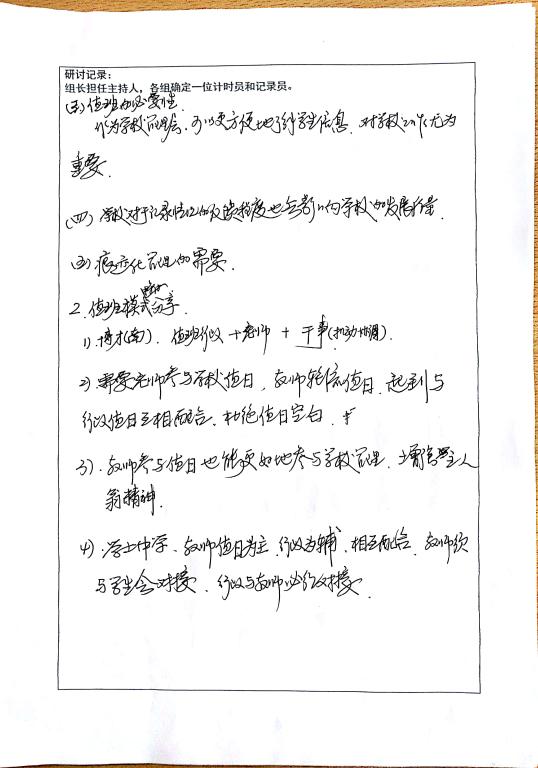 研讨记录：
组长担任主持人，各组确定一位计时员和记录员。
(三)值班的必要性
作为学校管理层，可以更方便地了解学生信息，对学校工作尤为
重要。
(四)学校对于记录情况的反馈程度也会影响学校的发展质量
(五)痕迹化管理的需要。
2.值班模式分享
1)博才(南)．值班行政＋老师＋干事(机动协调)．
2)需要老师参与学校值日，教师轮流值日，起到与
行政值日互相配合，杜绝值日空白．
3)．教师参与值日也能更好地参与学校管理，增强主人
翁精神．
4)．学士中学．教师值日为主，行政为辅，相互配合，教师须
与学生会对接，行政与教师必须对接．